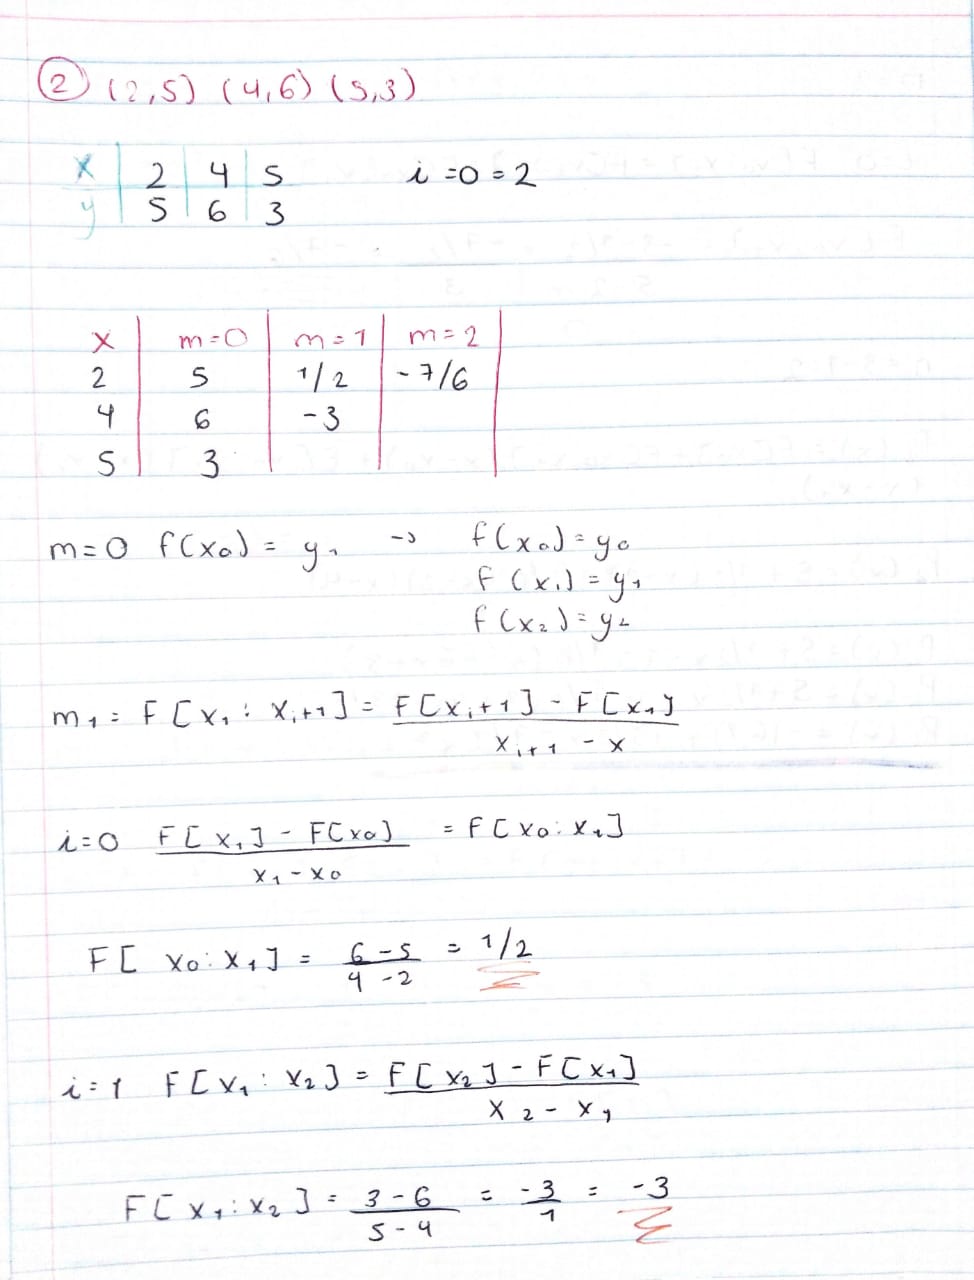 ② (2,5) (4,6) (5,3)
x | 2 | 4 | 5 i=0=2
y | 5 | 6 | 3
x | m=0 | m=1 | m=2
2 | 5 | 1/2 | -7/6
4 | 6 | -3
5 | 3
m=0 f(x₀) = y₁ -> f(x₀)=y₀
F(x₁)=y₁
f(x₂)=y₂
m₁ = F[x₁ : xᵢ₊₁] = F[xᵢ+1] - F[x₁]
xᵢ₊₁ - x
i=0 F[x₁] - F[x₀] = F[x₀:x₁]
x₁-x₀
F[x₀:x₁] = 6-5 = 1/2
4-2
i=1 F[x₁:x₂] = F[x₂] - F[x₁]
x₂-x₁
F[x₁:x₂] = 3-6 = -3 = -3
5-4 1